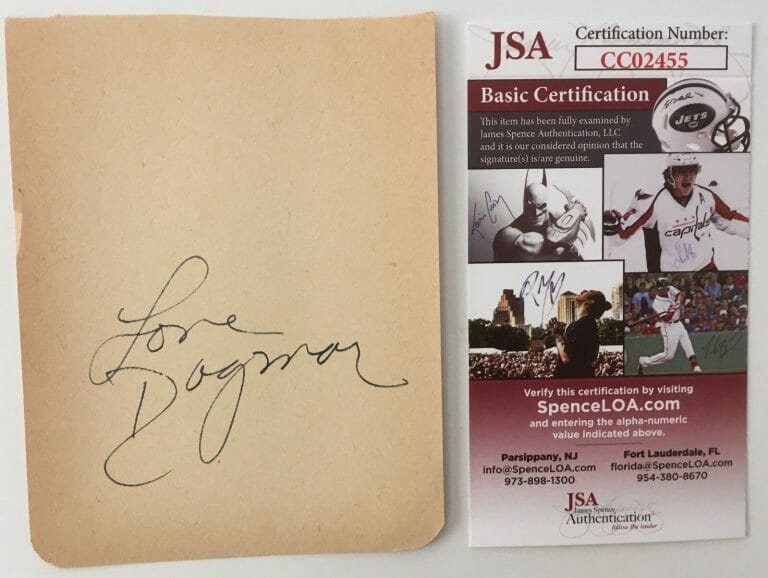 Love
Dagmar
JSA
Certification Number:
CC02455
Basic Certification
This item has been fully examined by
James Spence Authentication, LLC
and it is our considered opinion that the
signature(s) is/are genuine.
JETS
capitals
Verify this certification by visiting
SpenceLOA.com
and entering the alpha-numeric
value indicated above.
Parsippany, NJ
info@SpenceLOA.com
973-898-1300
Fort Lauderdale, FL
florida@SpenceLOA.com
954-380-8670
JSA
James Spence
Authentication
follow the leader